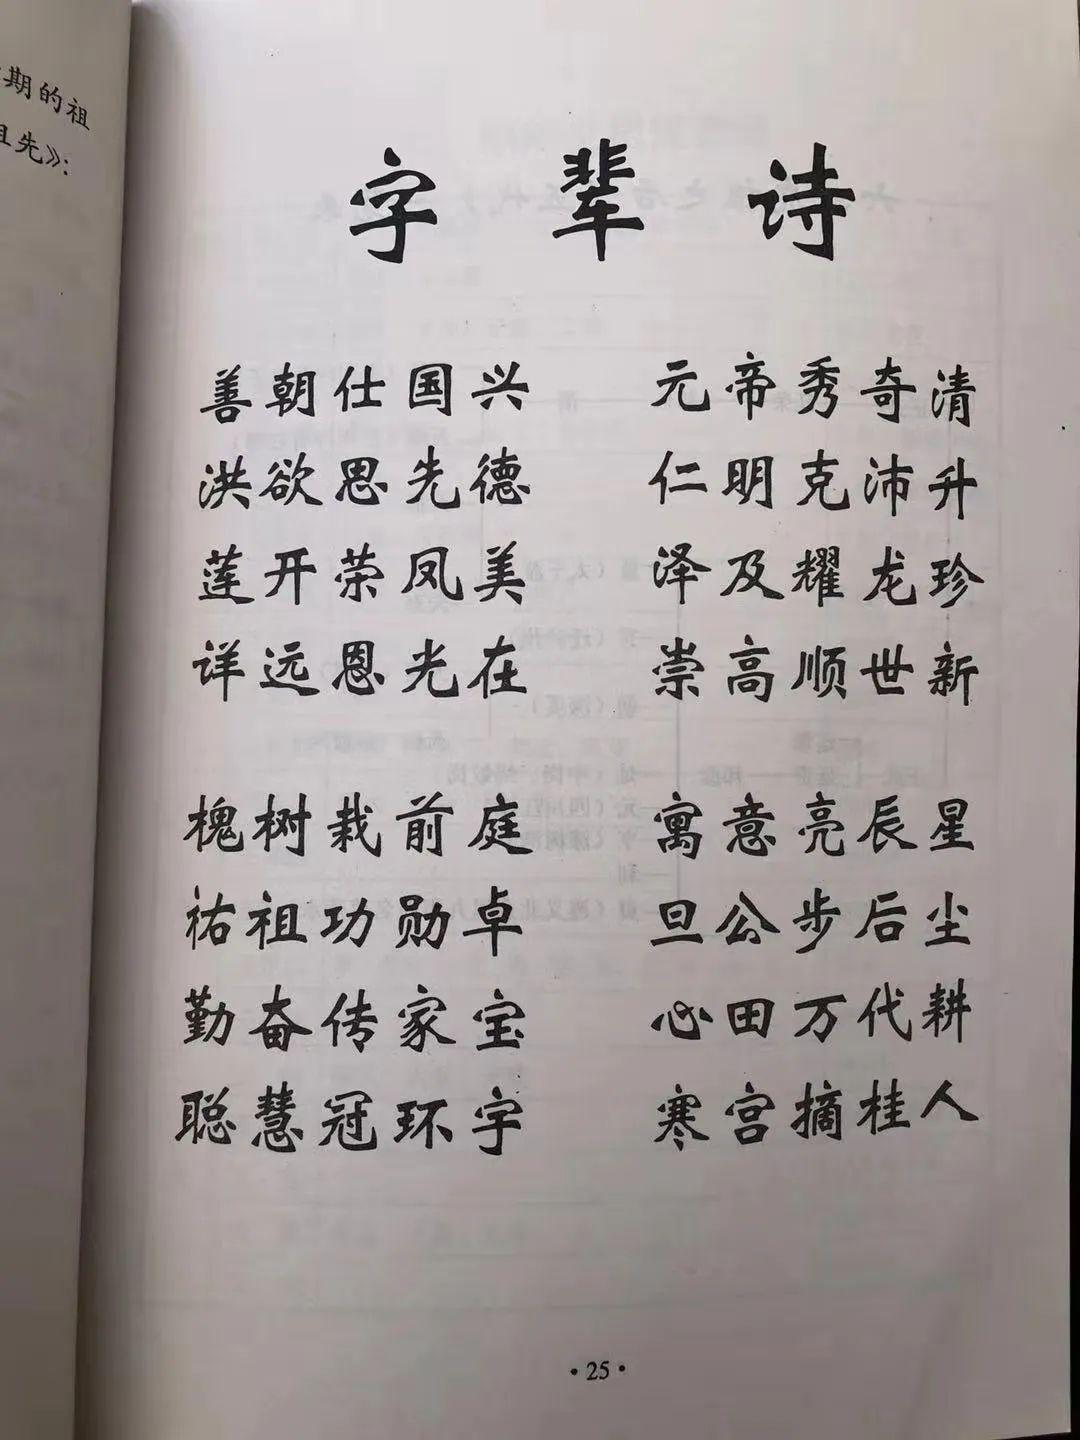 期的祖
祖先》：
字辈诗
善朝仕国兴 元帝秀奇清
洪欲思先德 仁明克沛升
莲开荣凤美 泽及耀龙珍
详远恩光在 崇高顺世新
槐树栽前庭 寓意亮辰星
祐祖功勋卓 旦公步后尘
勤奋传家宝 心田万代耕
聪慧冠环宇 寒宫摘桂人
·25·